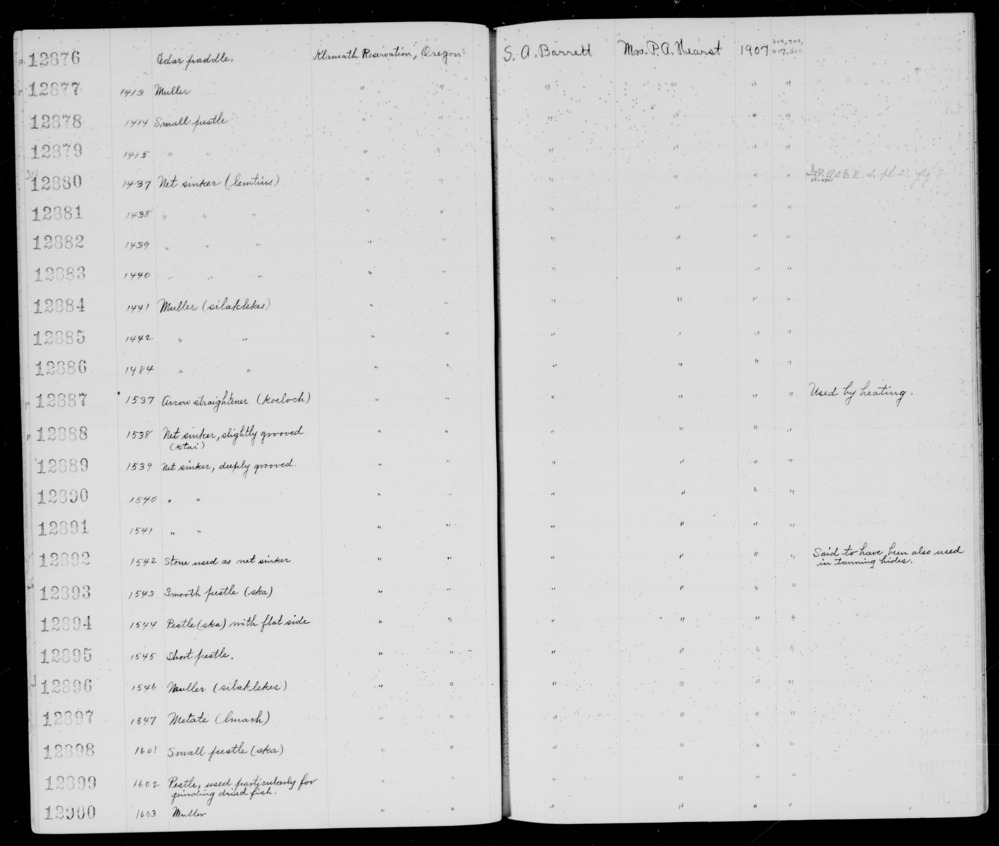 12876 Cedar paddle. Klamath Reservation, Oregon. S. A. Barrett Mrs. P. A. Hearst 1907
12877 1413 Muller " " " " " "
12878 1414 Small pestle " " " " " "
12879 1415 " " " " " " " "
12880 1437 Net sinker (lemtius) " " " " " "
12881 1438 " " " " " " " " "
12882 1439 " " " " " " " " "
12883 1440 " " " " " " " " "
12884 1441 Muller (silaklekes) " " " " " "
12885 1442 " " " " " " " "
12886 1484 " " " " " " " "
12887 1537 Arrow straightener (koeloch) " " " " " " Used by heating.
12888 1538 Net sinker, slightly grooved " " " " " "
(ktai)
12889 1539 Net sinker, deeply grooved. " " " " " "
12890 1540 " " " " " " " "
12891 1541 " " " " " " " "
12892 1542 Stone used as net sinker " " " " " " Said to have been also used
in tanning hides.
12893 1543 Smooth pestle (ska) " " " " " "
12894 1544 Pestle (ska) with flat side " " " " " "
12895 1545 Short pestle. " " " " " "
12896 1546 Muller (silaklekes) " " " " " "
12897 1547 Metate (lmach) " " " " " "
12898 1601 Small pestle (ska) " " " " " "
12899 1602 Pestle, used particularly for " " " " " "
grinding dried fish.
12900 1603 Muller " " " " " "